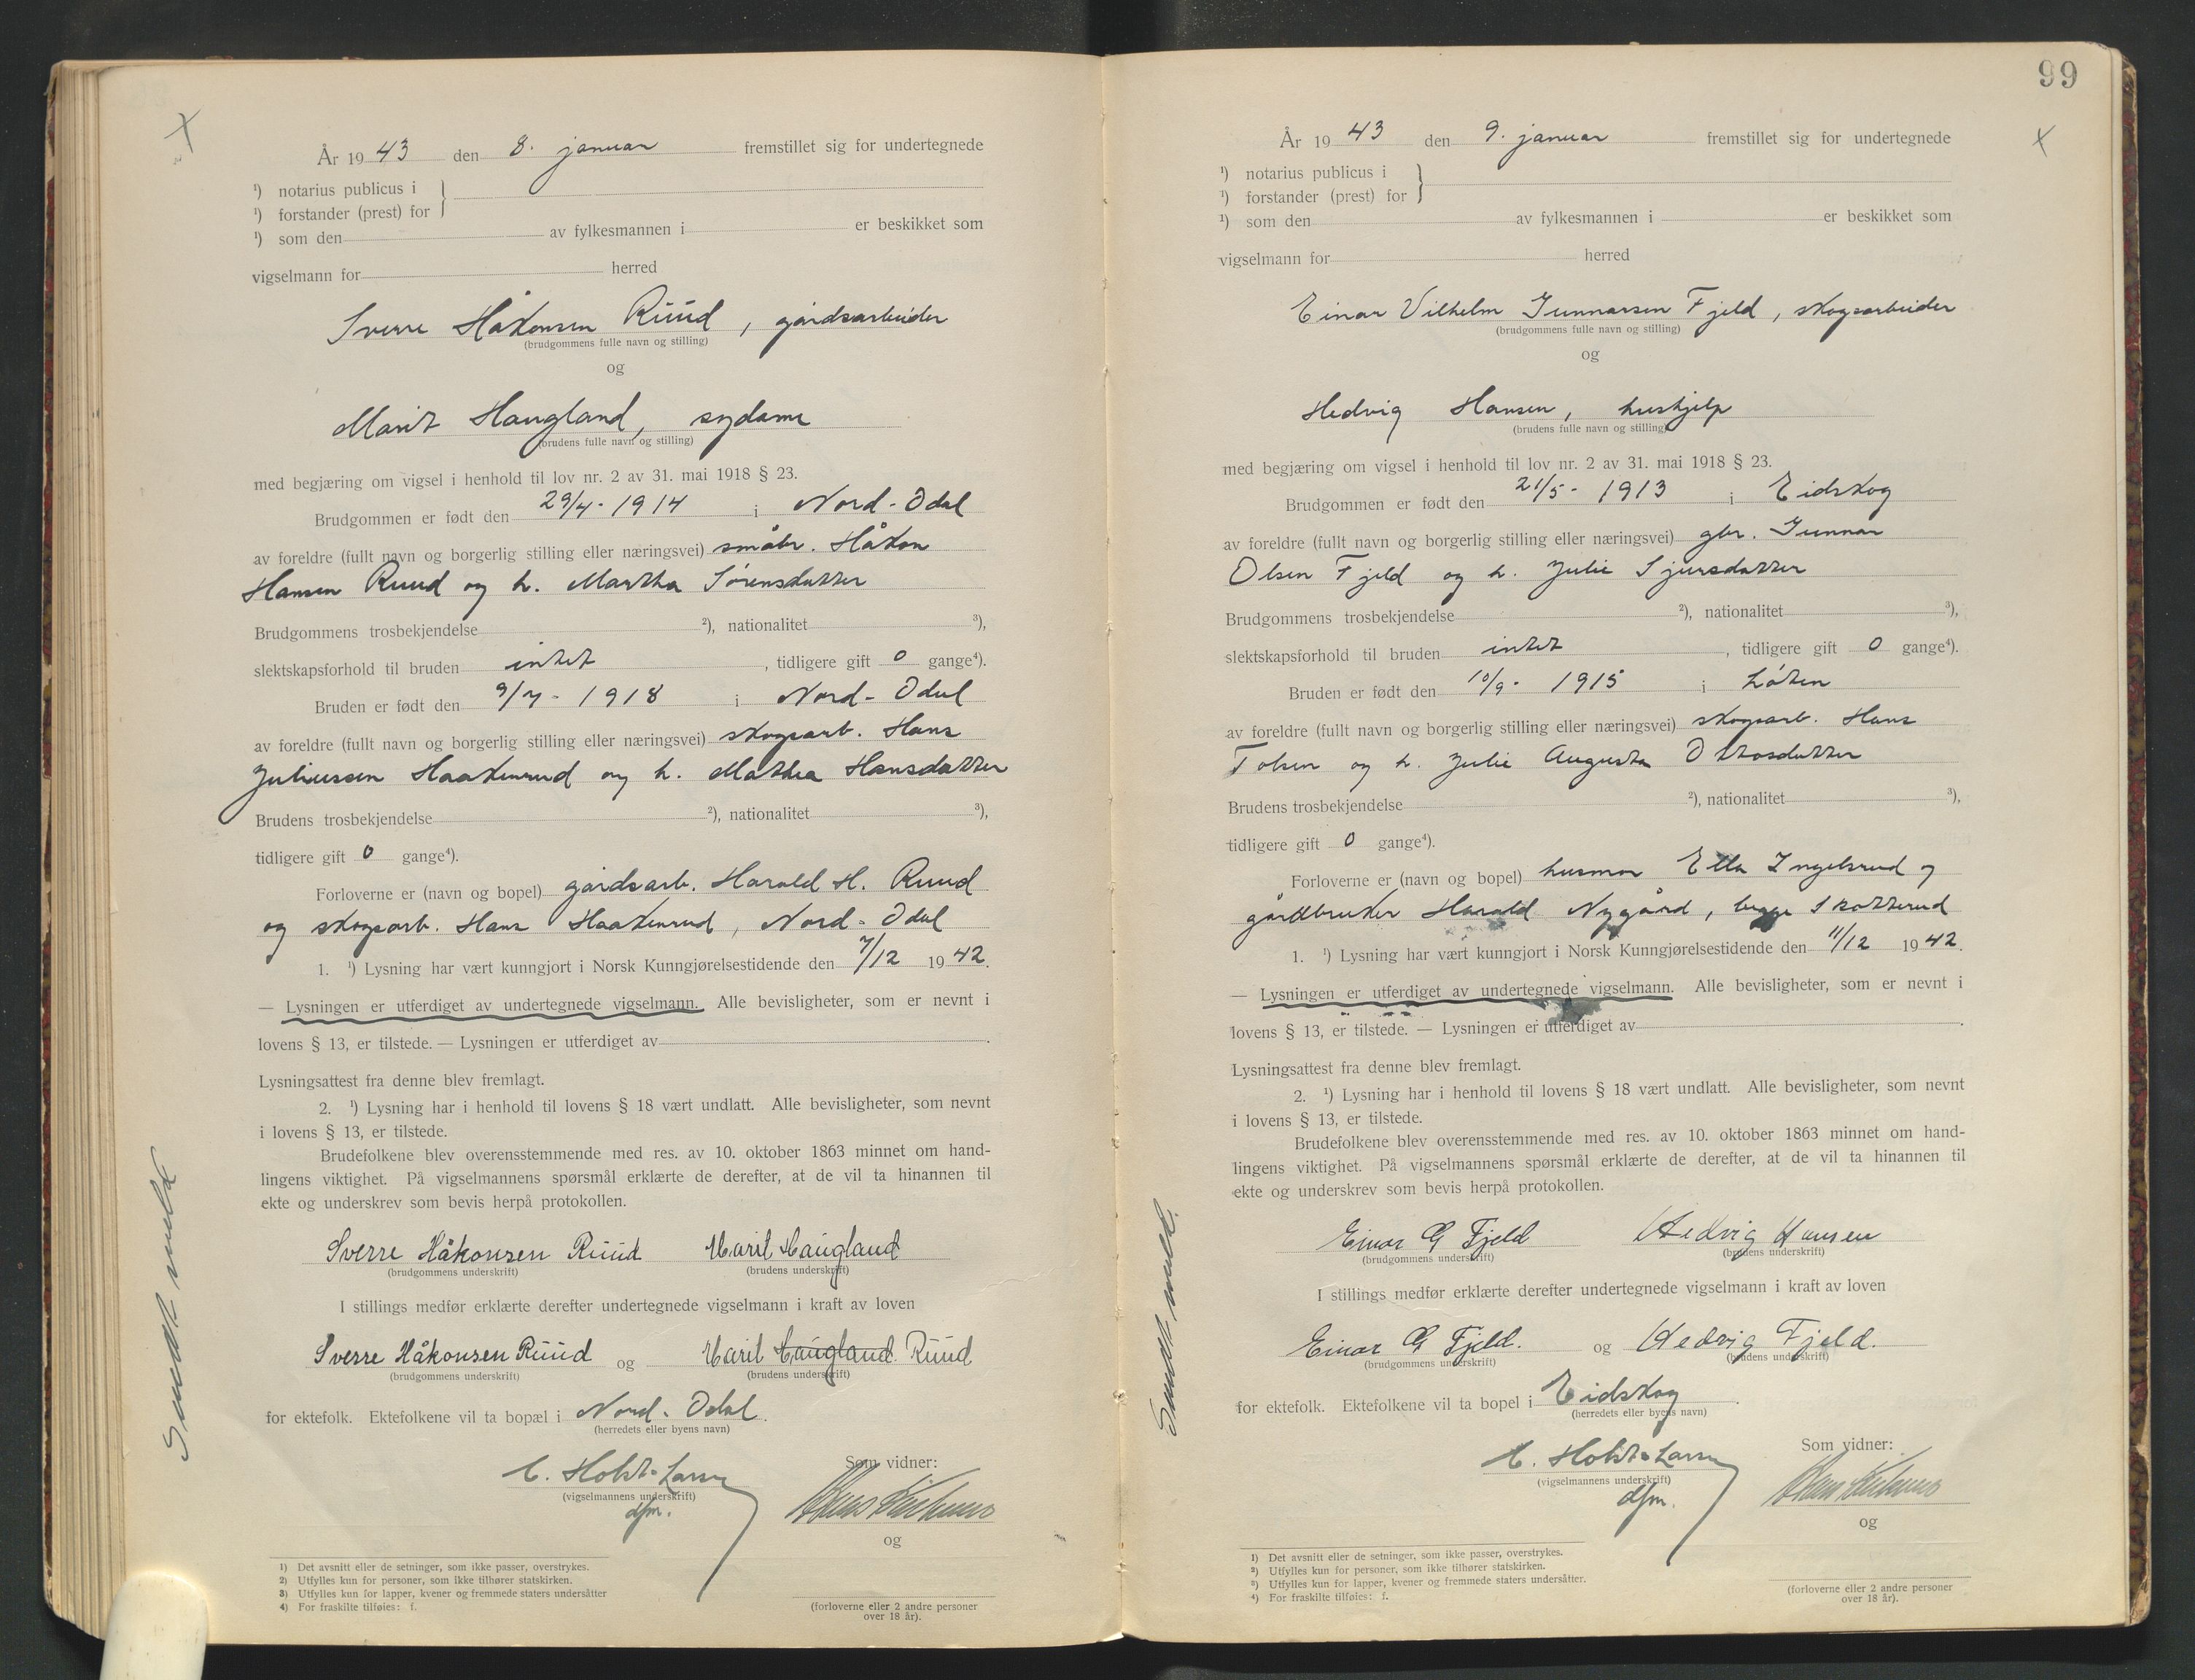 År 1943 den 8. januar fremstillet sig for undertegnede
¹) notarius publicus i
¹) forstander (prest) for }
¹) som den av fylkesmannen i er beskikket som
vigselmann for herred
Sverre Håkonsen Ruud, gårdsarbeider
(brudgommens fulle navn og stilling)
og
Marit Haugland, sydame
(brudens fulle navn og stilling)
med begjæring om vigsel i henhold til lov nr. 2 av 31. mai 1918 § 23.
Brudgommen er født den 29/4 - 1914 i Nord-Odal
av foreldre (fullt navn og borgerlig stilling eller næringsvei) småbr. Håkon
Hansen Ruud og h. Martha Sørensdatter
Brudgommens trosbekjendelse ²), nationalitet ³),
slektskapsforhold til bruden intet, tidligere gift 0 gange⁴).
Bruden er født den 9/7 - 1918 i Nord-Odal
av foreldre (fullt navn og borgerlig stilling eller næringsvei) skogsarb. Hans
Juliussen Haakenrud og h. Mathea Hansdatter
Brudens trosbekjendelse ²), nationalitet ³),
tidligere gift 0 gange⁴).
Forloverne er (navn og bopel) gårdsarb. Harald H. Ruud
og skogsarb. Hans Haakenrud, Nord-Odal
1. ¹) Lysning har vært kunngjort i Norsk Kunngjørelsestidende den 7/12 1942.
— Lysningen er utferdiget av undertegnede vigselmann. Alle bevisligheter, som er nevnt i
lovens § 13, er tilstede. — Lysningen er utferdiget av .
Lysningsattest fra denne blev fremlagt.
2. ¹) Lysning har i henhold til lovens § 18 vært undlatt. Alle bevisligheter, som nevnt
i lovens § 13, er tilstede.
Brudefolkene blev overensstemmende med res. av 10. oktober 1863 minnet om hand-
lingens viktighet. På vigselmannens spørsmål erklærte de derefter, at de vil ta hinannen til
ekte og underskrev som bevis herpå protokollen.
Sverre Håkonsen Ruud Marit Haugland
(brudgommens underskrift) (brudens underskrift)
I stillings medfør erklærte derefter undertegnede vigselmann i kraft av loven
Sverre Håkonsen Ruud og Marit Haugland Ruud
(brudgommens underskrift) (brudens underskrift)
for ektefolk. Ektefolkene vil ta bopæl i Nord-Odal.
(herredets eller byens navn)
E. Holst-Larsen Som vidner:
(vigselmannens underskrift)
dfm.
og
1) Det avsnitt eller de setninger, som ikke passer, overstrykes.
2) Utfylles kun for personer, som ikke tilhører statskirken.
3) Utfylles kun for lapper, kvener og fremmede staters undersåtter
4) For fraskilte tilføies: f.
(forloverne eller 2 andre personer
over 18 år).
Sendt meld
99
År 1943 den 9. januar fremstillet sig for undertegnede
¹) notarius publicus i
¹) forstander (prest) for }
¹) som den av fylkesmannen i er beskikket som
vigselmann for herred
Einar Vilhelm Gunnarsen Fjeld, skogsarbeider
(brudgommens fulle navn og stilling)
og
Hedvig Hansen, hushjelp
(brudens fulle navn og stilling)
med begjæring om vigsel i henhold til lov nr. 2 av 31. mai 1918 § 23.
Brudgommen er født den 21/5 - 1913 i Eidskog
av foreldre (fullt navn og borgerlig stilling eller næringsvei) gbr. Gunnar
Olsen Fjeld og h. Julie Sjursdatter
Brudgommens trosbekjendelse ²), nationalitet ³),
slektskapsforhold til bruden intet, tidligere gift 0 gange⁴).
Bruden er født den 10/9 - 1915 i Løten
av foreldre (fullt navn og borgerlig stilling eller næringsvei) skogsarb. Hans
Tolsen og h. Julie Augusta Ottosdatter
Brudens trosbekjendelse ²), nationalitet ³),
tidligere gift 0 gange⁴).
Forloverne er (navn og bopel) husmor Ella Ingelsrud og
gårdbruker Harald Nygård, begge Skotterud
1. ¹) Lysning har vært kunngjort i Norsk Kunngjørelsestidende den 11/12 1942.
— Lysningen er utferdiget av undertegnede vigselmann. Alle bevisligheter, som er nevnt i
lovens § 13, er tilstede. — Lysningen er utferdiget av .
Lysningsattest fra denne blev fremlagt.
2. ¹) Lysning har i henhold til lovens § 18 vært undlatt. Alle bevisligheter, som nevnt
i lovens § 13, er tilstede.
Brudefolkene blev overensstemmende med res. av 10. oktober 1863 minnet om hand-
lingens viktighet. På vigselmannens spørsmål erklærte de derefter, at de vil ta hinannen til
ekte og underskrev som bevis herpå protokollen.
Einar G Fjeld Hedvig Hansen
(brudgommens underskrift) (brudens underskrift)
I stillings medfør erklærte derefter undertegnede vigselmann i kraft av loven
Einar G Fjeld. og Hedvig Fjeld.
(brudgommens underskrift) (brudens underskrift)
for ektefolk. Ektefolkene vil ta bopel i Eidskog.
(herredets eller byens navn)
E. Holst-Larsen Som vidner:
(vigselmannens underskrift)
dfm.
og
1) Det avsnitt eller de setninger, som ikke passer, overstrykes.
2) Utfylles kun for personer, som ikke tilhører statskirken.
3) Utfylles kun for lapper, kvener og fremmede staters undersåtter.
4) For fraskilte tilføies: f.
(forloverne eller 2 andre personer
over 18 år).
Sendt meld.